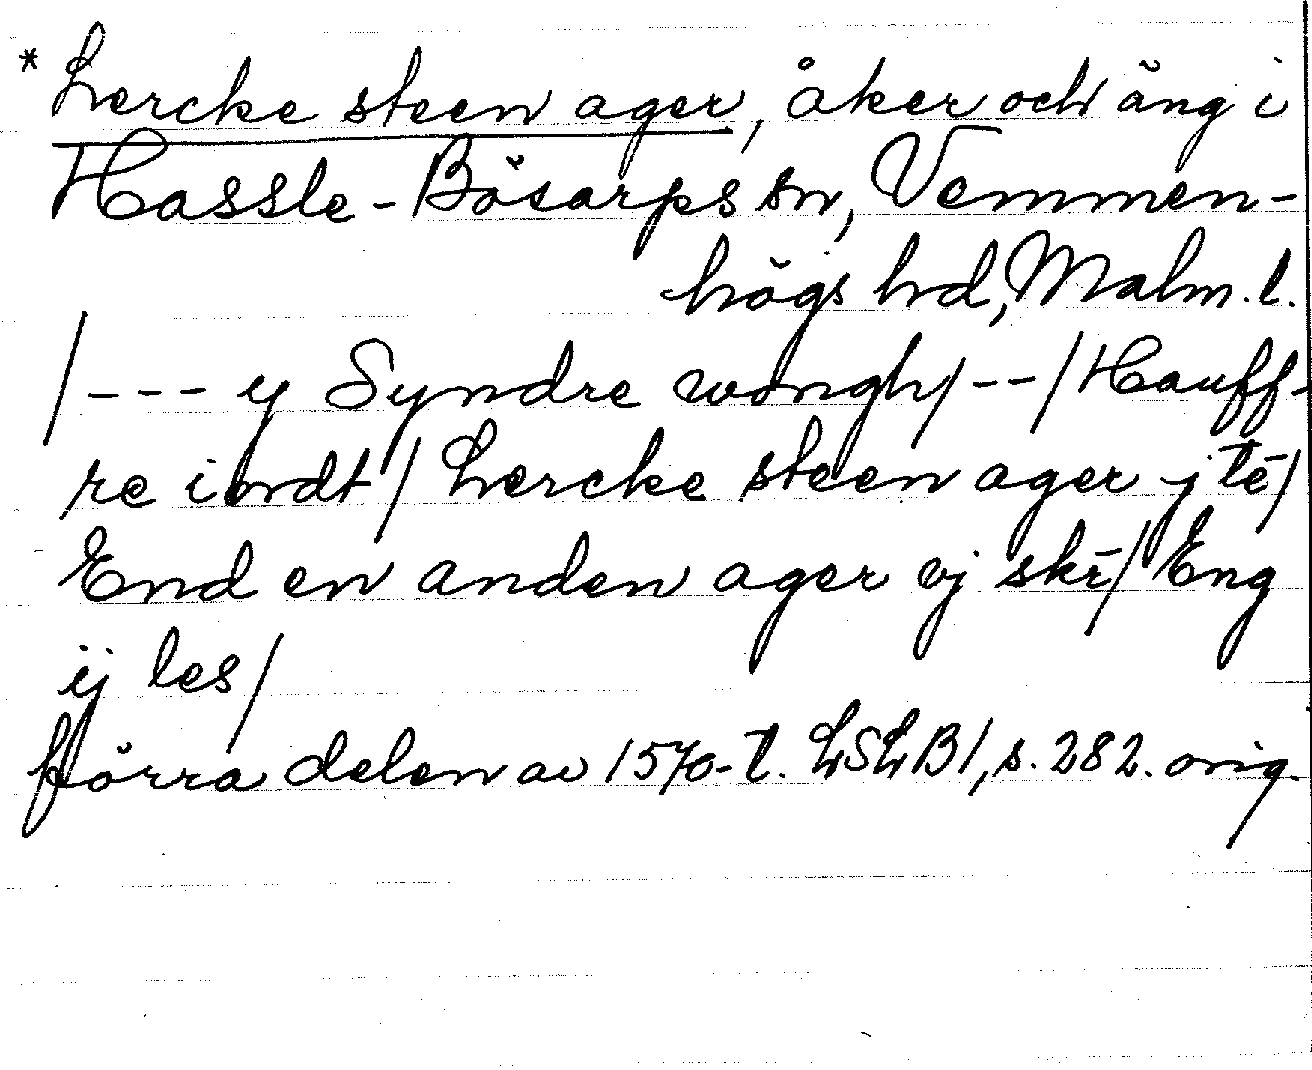 * Lercke steen ager, åker och äng i
Hassle-Bösarps sn, Vemmen-
högs hd, Malm. l.
/--- y Syndre wongh/--/Hauff-
re iordt/ Lercke steen ager j tē/
End en anden ager vj skr̄/ Eng
ij les/
förra delen av 1570-t. LSLB1, s. 282. orig.